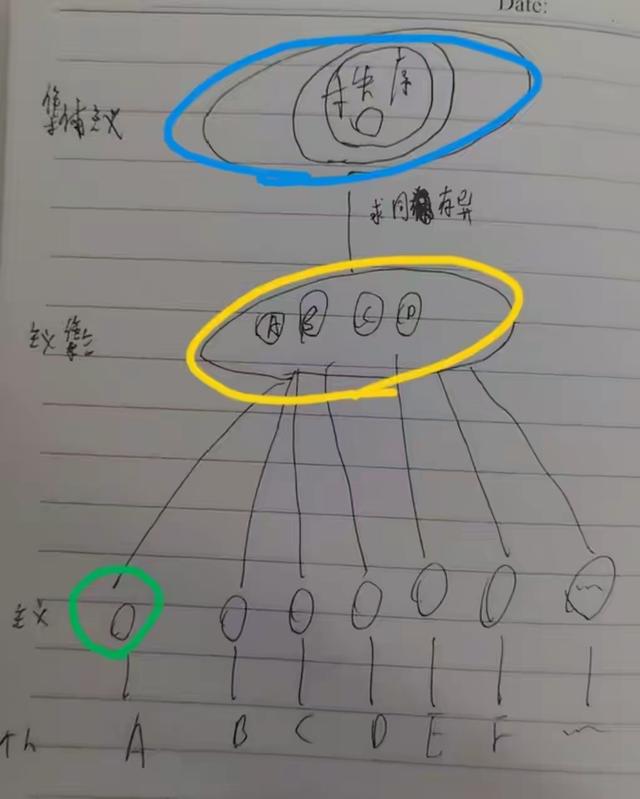 Date:
集体主义
求同存异
主义集合
A B C D
主义
个人 A B C D E F